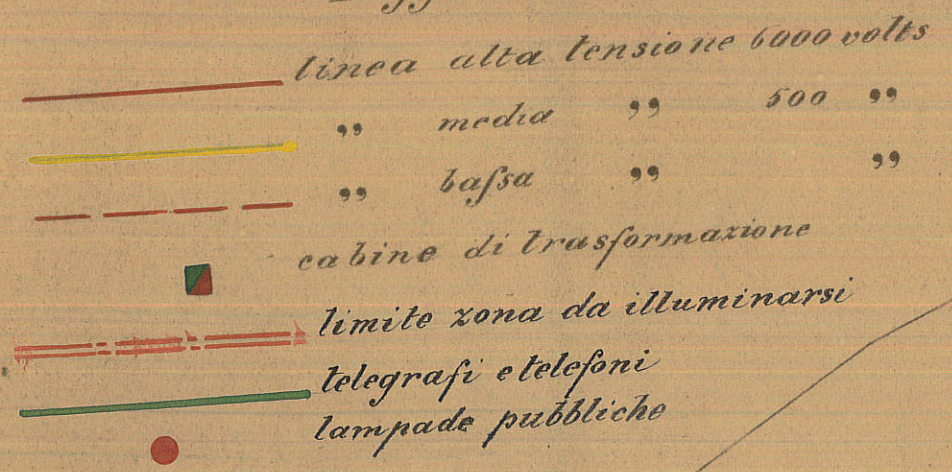 linea alta tensione 6000 volts
„ media „ 500 „
„ baſsa „ „
cabine di trasformazione
limite zona da illuminarsi
telegrafi e telefoni
lampade pubbliche